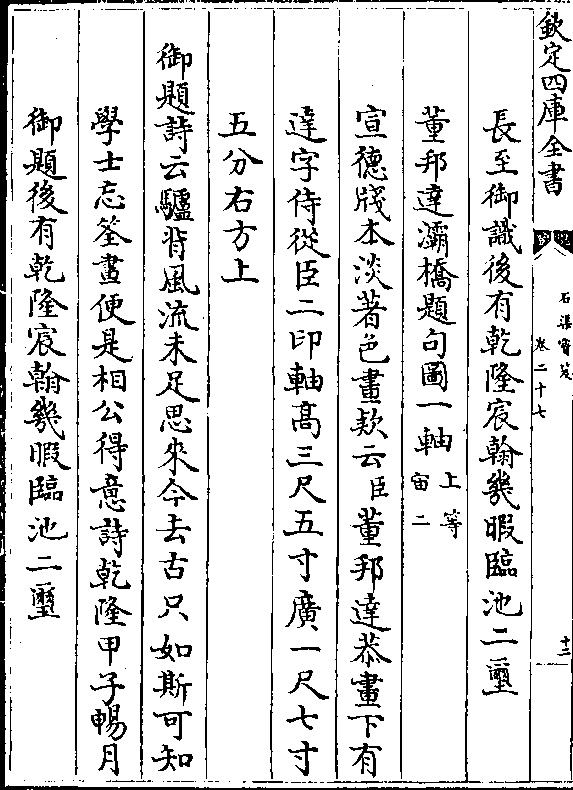 欽定四庫全書
石渠寶笈
卷二十七
十二
長至御識後有乾隆宸翰幾暇臨池二璽
董邦達灞橋題句圖一軸上等
宙二
宣德牋本淡著色畫款云臣董邦達恭畫下有
達字侍從臣二印軸高三尺五寸廣一尺七寸
五分右方上
御題詩云驢背風流未足思來今去古只如斯可知
學士忘筌畫便是相公得意詩乾隆甲子暢月
御題後有乾隆宸翰幾暇臨池二璽